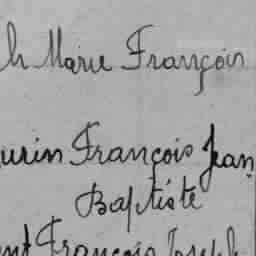 h Marie François
urin François Jean
Baptiste
ent François Joseph